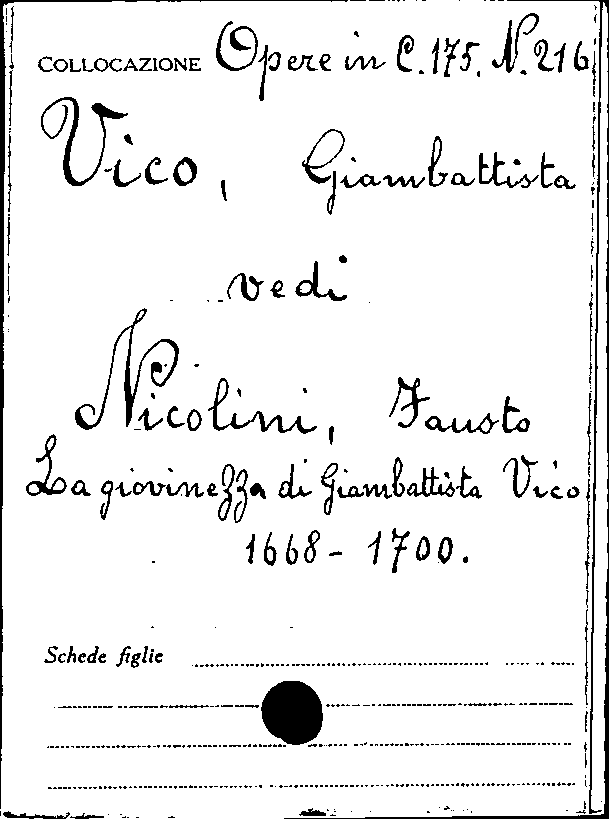 COLLOCAZIONE Opere in C.175. N.216
Vico, Giambattista
vedi
Nicolini, Fausto
La giovinezza di Giambattista Vico
1668 - 1700.
Schede figlie